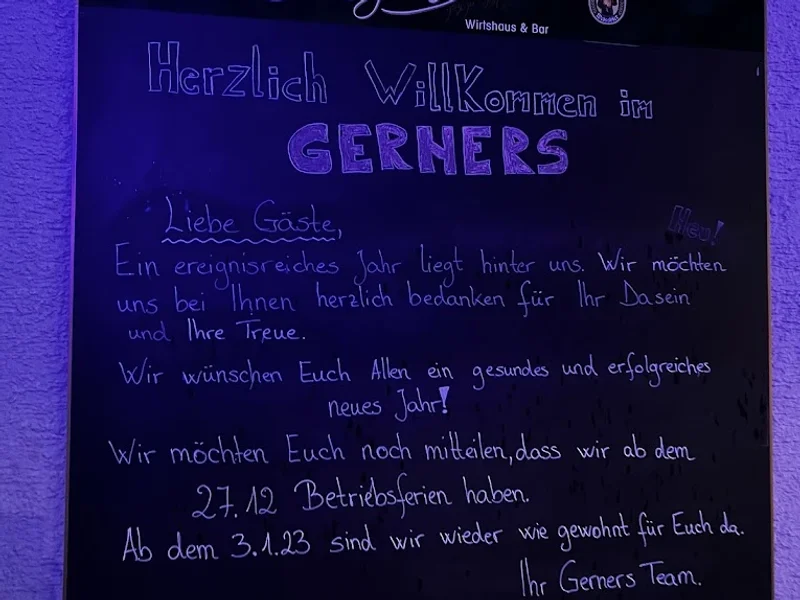 Wirtshaus & Bar
Herzlich Willkommen im
GERNERS
Liebe Gäste,
Heu!
Ein ereignisreiches Jahr liegt hinter uns. Wir möchten
uns bei Ihnen herzlich bedanken für Ihr Dasein
und Ihre Treue.
Wir wünschen Euch Allen ein gesundes und erfolgreiches
neues Jahr!
Wir möchten Euch noch mitteilen, dass wir ab dem
27.12 Betriebsferien haben.
Ab dem 3.1.23 sind wir wieder wie gewohnt für Euch da.
Ihr Gerners Team.